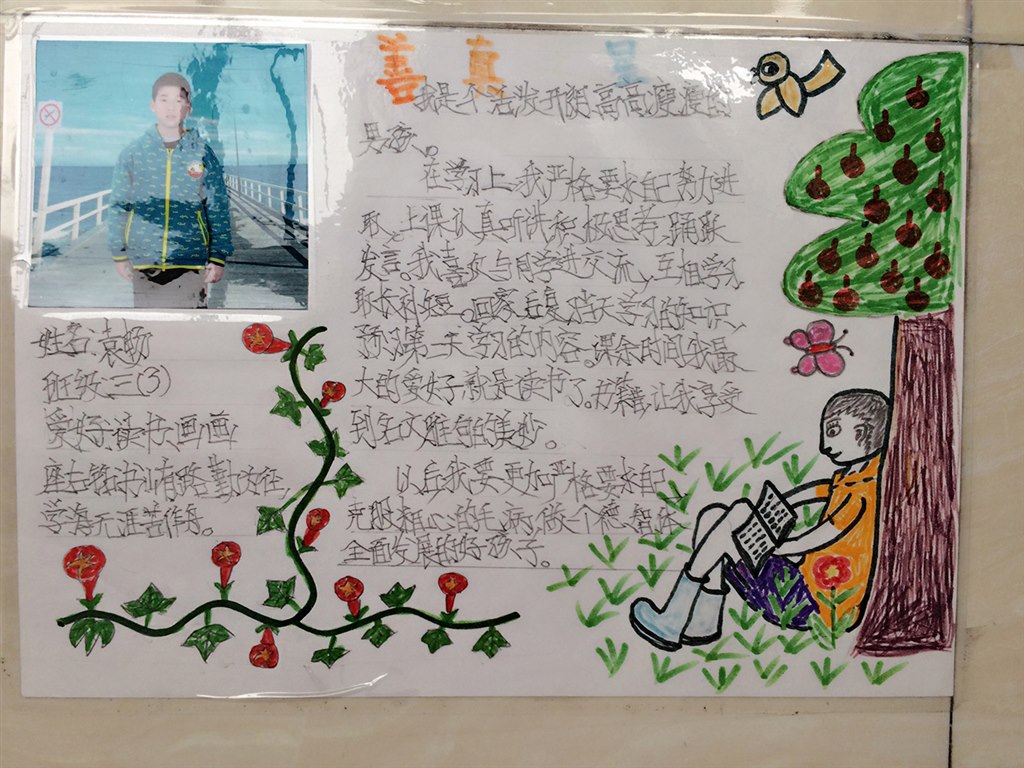 善 真 美
我是个活泼开朗高高瘦瘦的
男孩。
在学习上,我严格要求自己努力进
取,上课认真听讲,积极思考,踊跃
发言。我喜欢与同学进交流,互相学习
取长补短。回家后复习当天学习的知识,
预习第二天学习的内容。课余时间我最
大的爱好就是读书了。书籍让我享受
到名文雅句的美妙。
以后我要更加严格要求自己
克服粗心的毛病,做一个德、智、体
全面发展的好孩子。
姓名:袁
班级:三(3)
爱好:读书,画画
座右铭:书山有路勤为径,
学海无涯苦作舟。